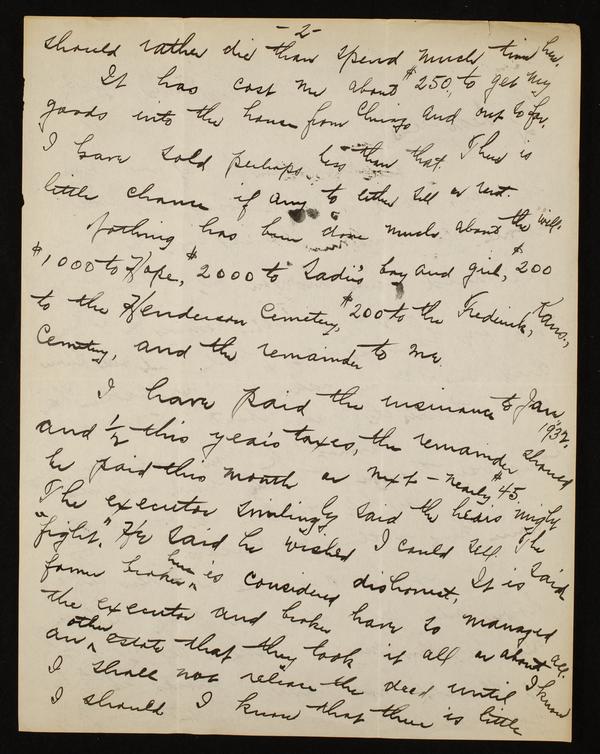 -2-
should rather die than spend much time here.
It has cost me about $250, to get my
goods into the house from Chicago and out so far.
I have sold perhaps less than that. There is
little chance if any to either sell or rent.
Nothing has been done much about the will.
$1000 to Hope, $2000 to Sadie's boy and girl, $200
to the Henderson Cemetery, $200 to the Frederick, Kans.,
Cemetery, and the remainder to me.
I have paid the insurance to Jan. 1932.
and 1/2 this year's taxes, the remainder should
be paid this month or next - nearly $45.
The executor smilingly said the heirs might
"fight." He said he wished I could sell. The
former broker, here is considered dishonest. It is said
the executor and broker have so managed
an other estate that they took it all or about all.
I shall not release the deed until I know
I should I know that there is little